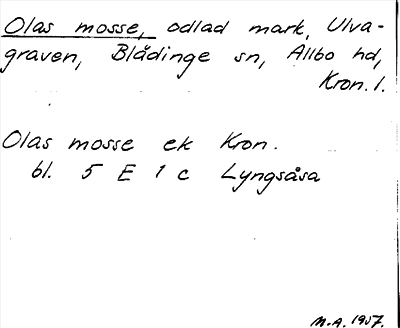 Olas mosse, odlad mark, Ulva-
graven, Blädinge sn, Allbo hd,
Kron. l.
Olas mosse ek Kron.
bl. 5 E 1 c Lyngsåsa
M.A. 1957.